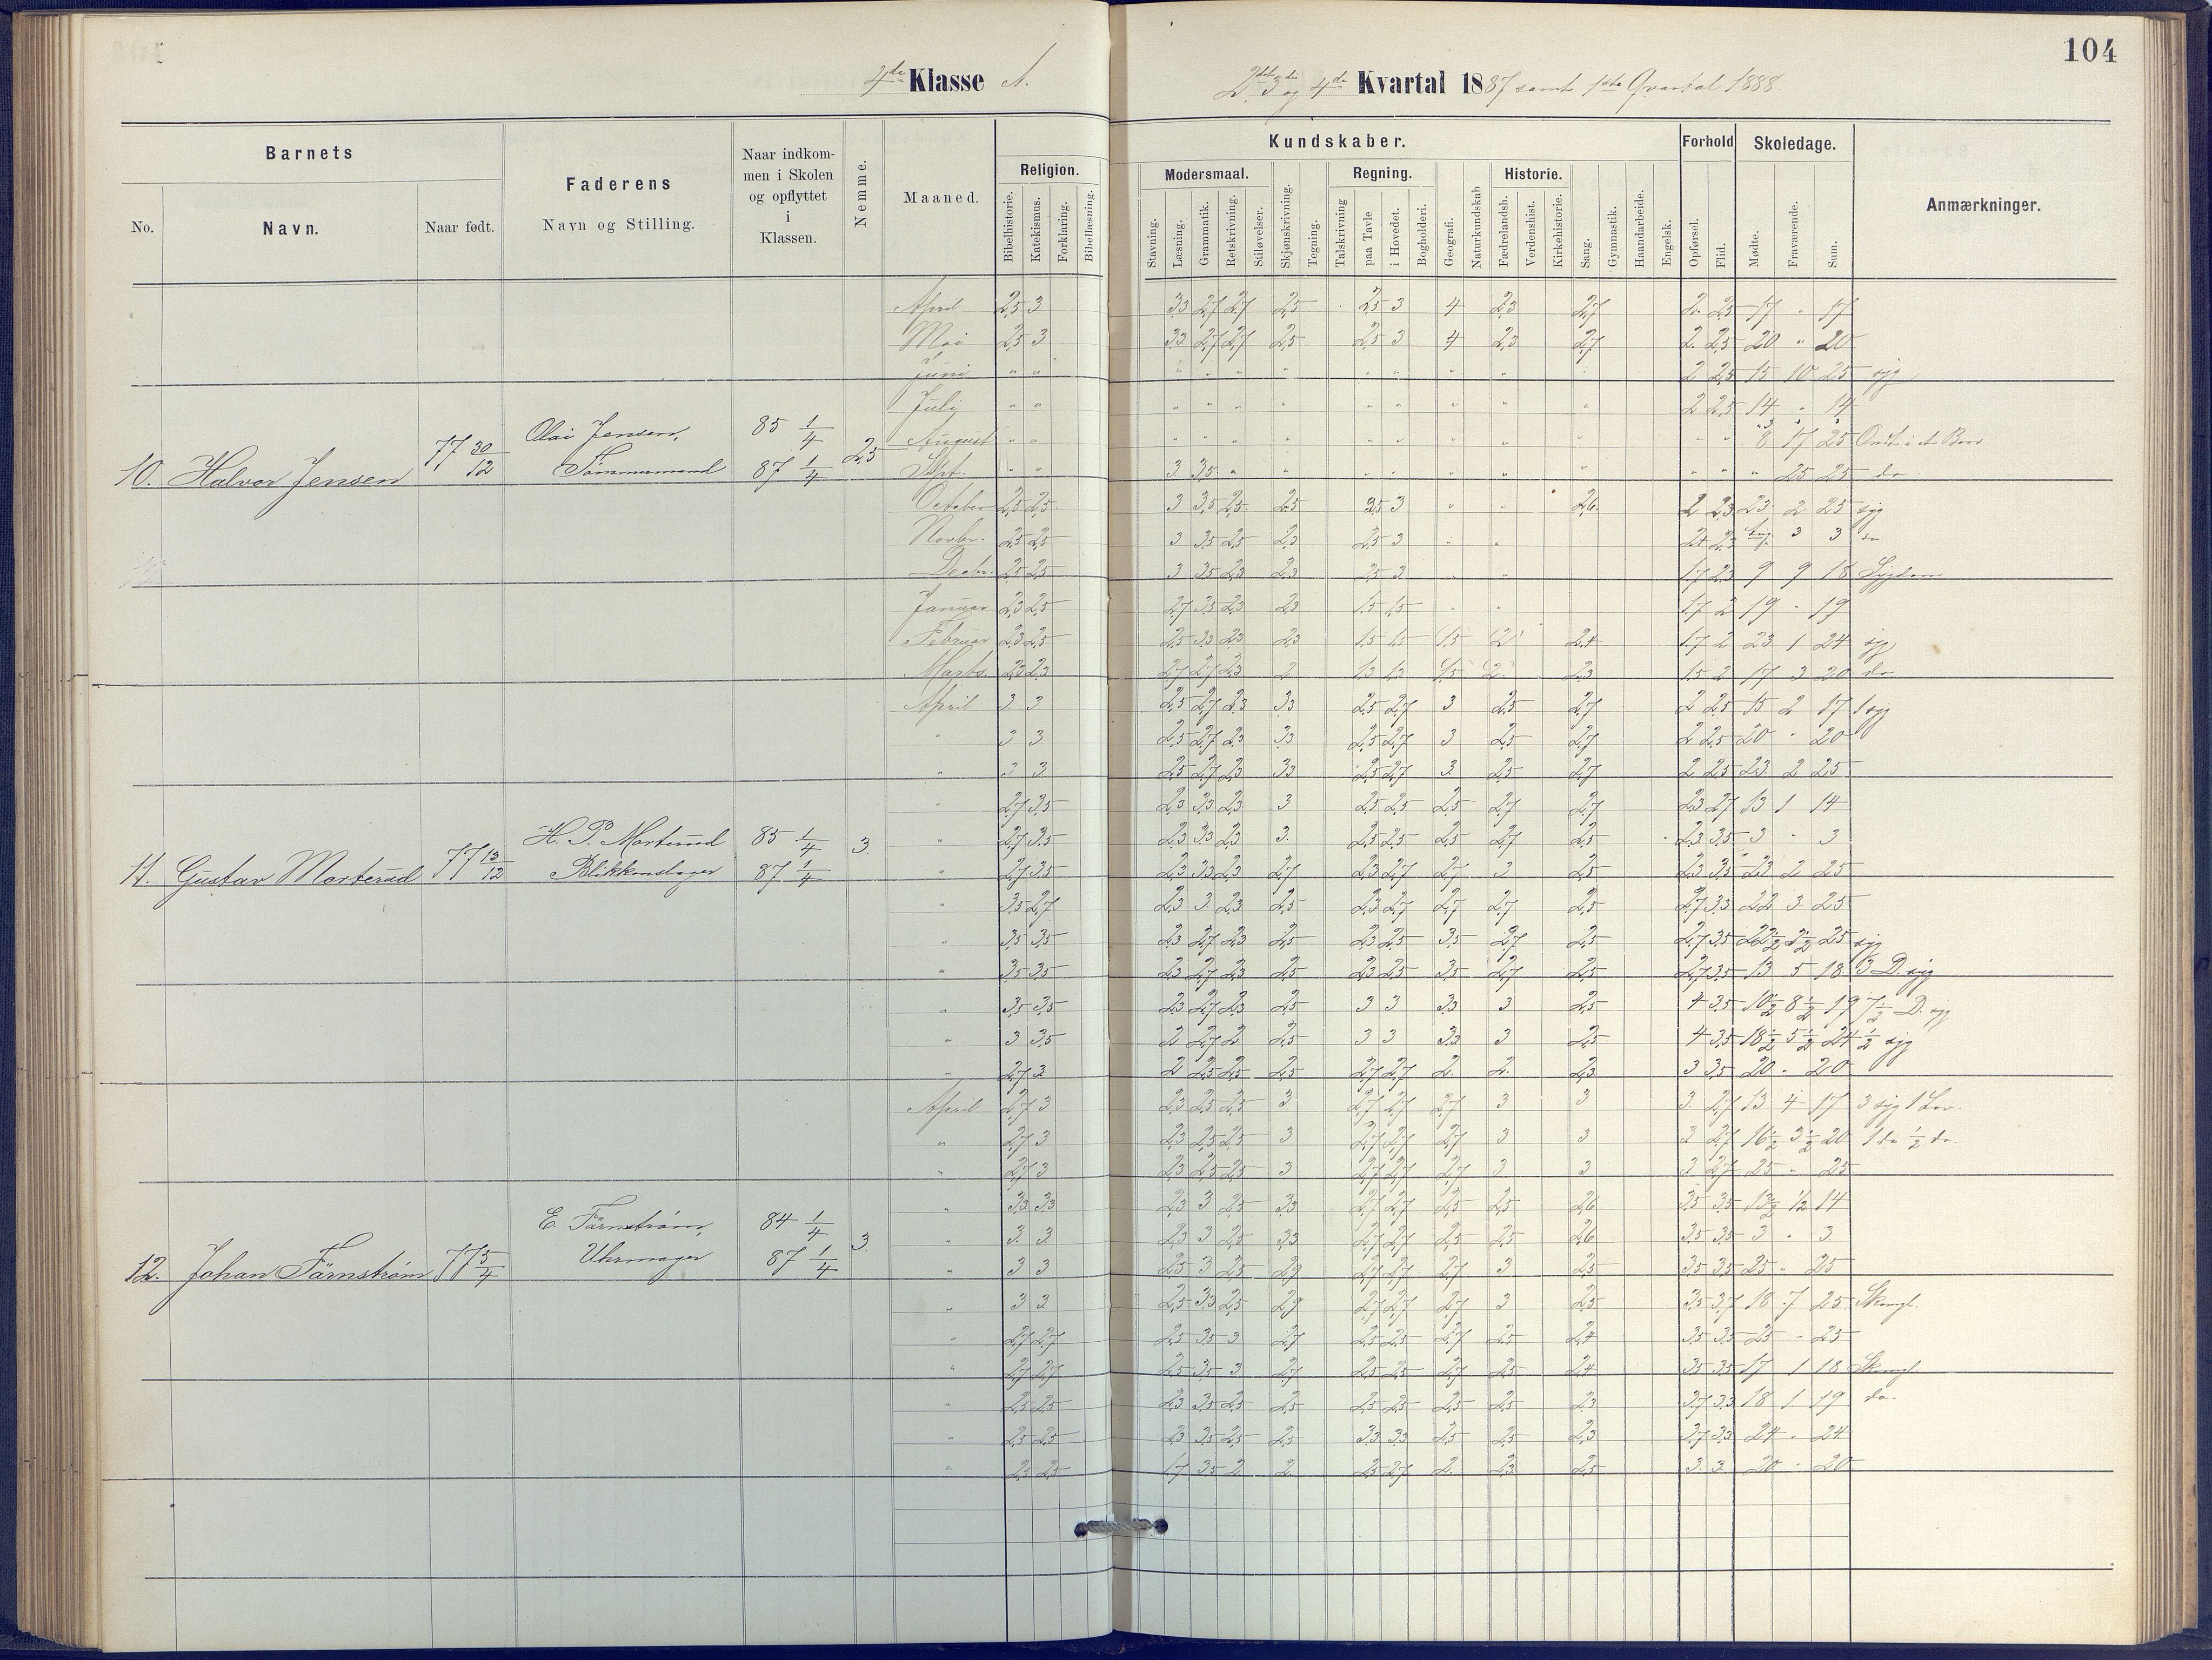 104
4de Klasse A.
2det 3die og 4de Kvartal 1887 samt 1ste Qvartal 1888.
Barnets
Faderens
Navn og Stilling.
Naar indkom-
men i Skolen
og opflyttet
i
Klassen.
Nemme.
Maaned.
Kundskaber.
Forhold
Skoledage.
Anmærkninger.
No.
Navn.
Naar født.
Religion.
Modersmaal.
Regning.
Historie.
Bibelhistorie.
Katekismus.
Forklaring.
Bibellæsning.
Stavning.
Læsning.
Grammatik.
Retskrivning.
Stiløvelser.
Skjønskrivning.
Tegning.
Talskrivning
paa Tavle
i Hovedet.
Bogholderi.
Geografi.
Naturkundskab
Fædrelandsh.
Verdenshist.
Kirkehistorie.
Sang.
Gymnastik.
Haandarbeide.
Engelsk.
Opførsel.
Flid.
Mødte.
Fraværende.
Sum.
April 2,5 3 3,3 2,7 2,7 2,5 2,5 3 4 2,3 2,7 2 2,5 17 " 17
Mai 2,5 3 3,3 2,7 2,7 2,5 2,5 3 4 2,3 2,7 2 2,5 20 " 20
Juni " " " " " " " " " " 2 2,5 15 10 25 syg
Juli " " " " " " " " " " " 2 2,5 14 " 14
August " " " " " " " " " " " " " 8 17 25
Sept. " " 3 3,5 " " " " " " " " " " 25 25 do
10. Halvor Jensen 77 30/12 Olai Jensen, Tømmermand 85 1/4 87 1/4 2,5
October 2,5 2,5 3 3,5 2,5 2,5 3,5 3 " " 2,6 2 2,3 23 2 25 syg
Novbr. 2,5 2,5 3 3,5 2,5 2,3 2,5 3 " " 3 3 do
Decbr. 2,5 2,5 3 3,5 2,3 2,3 2,5 3 " " 1,7 2,3 9 9 18 Sygdom
Januar 2,3 2,5 2,7 3,5 2,3 2,3 1,5 1,5 " " 1,7 2 19 - 19
Februar 2,3 2,5 2,5 3,3 2,3 2,3 1,5 1,5 1,5 2 2,4 1,7 2 23 1 24 syg
Marts. 2,3 2,3 2,7 2,7 2,3 2 1,3 1,3 1,5 2 2,3 1,5 2 17 3 20 do
April 3 3 2,5 2,7 2,3 3,3 2,5 2,7 3 2,5 2,7 2 2,5 15 2 17 1 syg
" 3 3 2,5 2,7 2,3 3,3 2,5 2,7 3 2,5 2,7 2 2,5 20 - 20
" 3 3 2,5 2,7 2,3 3,3 2,5 2,7 3 2,5 2,7 2 2,5 23 2 25
" 2,7 3,5 2,3 3,3 2,3 3 2,5 2,5 2,5 2,7 2,7 2,3 2,7 13 1 14
" 2,7 3,5 2,3 3,3 2,3 3 2,5 2,5 2,5 2,7 2,5 2,3 3,5 3 - 3
" 2,7 3,5 2,3 3,3 2,3 2,7 2,3 2,7 2,7 3 2,5 2,3 3,5 23 2 25
11. Gustav Morterud 77 13/12 H. P. Morterud Blikkenslager 85 1/4 87 1/4 3
" 3,5 2,7 2,3 3 2,3 2,5 2,3 2,7 2,7 2,7 2,5 2,7 3,3 22 3 25
" 3,5 3,5 2,3 2,7 2,3 2,5 2,3 2,5 3,5 2,7 2,5 2,7 3,5 22 1/2 2 1/2 25 syg
" 3,5 3,5 2,3 2,7 2,3 2,5 2,3 2,5 3,5 2,7 2,5 2,7 3,5 13 5 18 3 D. syg
" 3,5 3,5 2,3 2,7 2,3 2,5 3 3 3,3 3 2,5 4 3,5 10 1/2 8 1/2 19 7 1/2 D. syg
" 3 3,5 2 2,7 2 2,5 3 3 3,3 3 2,5 4 3,5 18 1/2 5 1/2 24 1/2 syg
" 2,7 3 2 2,5 2,5 2,5 2,7 2,7 2 2 2,3 3 3,5 20 - 20
April 2,7 3 2,3 2,5 2,5 3 2,7 2,7 2,7 3 3 3 2,7 13 4 17 3 syg 1 Lov.
" 2,7 3 2,3 2,5 2,5 3 2,7 2,7 2,7 3 3 3 2,7 16 1/2 3 1/2 20 1 do 1/2 do
" 2,7 3 2,3 2,5 2,5 3 2,7 2,7 2,7 3 3 3 2,7 25 - 25
" 3,3 3,3 2,3 3 2,5 3,3 2,7 2,7 2,5 2,5 2,6 3,5 3,5 13 1/2 1/2 14
" 3 3 2,3 3 2,5 3,3 2,7 2,7 2,5 2,5 2,6 3,5 3,5 3 - 3
" 3 3 2,5 3 2,5 2,9 2,7 2,7 2,7 3 2,5 3,5 3,5 25 - 25
12. Johan Färnstrøm 77 5/4 E. Färnstrøm, Uhrmager 84 1/4 87 1/4 3
" 3 3 2,5 3,3 2,5 2,9 2,7 2,7 2,7 3 2,5 3,5 3,7 18 7 25 Skongl.
" 2,7 2,7 2,5 3,5 3 2,7 2,5 2,5 2,7 2,5 2,4 3,5 3,5 25 - 25
" 2,7 2,7 2,5 3,5 3 2,7 2,5 2,5 2,7 2,5 2,4 3,5 3,5 17 1 18 Skongl.
" 2,5 2,5 2,3 3,5 2,5 2,5 2,5 2,5 2,5 2,5 2,3 3,7 3,3 18 1 19 do.
" 2,5 2,5 2,3 3,5 2,5 2,5 3,3 3,3 2,5 2,5 2,3 3,7 3,3 24 - 24
" 2,5 2,5 1,7 3,5 2 2 2,5 2,7 2 2,3 2,5 3 3 20 - 20